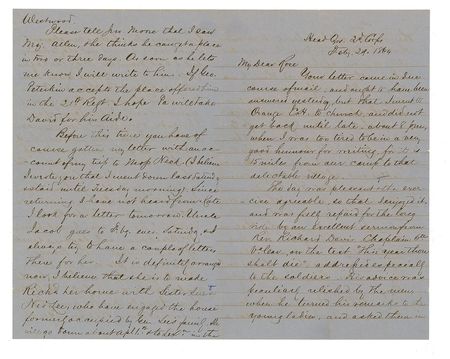 Westwood.
Please tell Jno Moore that I saw
Maj. Allen, & he thinks he can get a place
in two or three days. As soon as he lets
me know I will write to him. If Geo.
Peterkin accepts the place offered him
in the 21st Regt. I hope Pa will take
David for his Aide.
Before this time you have of
course gotten my letter with an ac-
count of my trip to
I wrote you that I went down last
& staid until Tuesday morning). Since
returning I have not heard from
I look for a letter tomorrow. Uncle
Jacob goes to every Saturday, & I
always try to have a couple of letters
there for her. It is definitely arranged
now I believe that she is to make
Richd her home with
who have engaged the house
formerly occupied by Gen. family. She
will go down about April 1st & to be in the
Head Qrs. 2d Corps
Feby. 29. 1864
My Dear Rose
Your letter came in due
course of mail, and ought to have been
answered yesterday, but that I went to
Orange C.H. to church, and did not
get back until late, about 8 P.M.,
when I was too tired to be in a very
good humour for writing, for it is
15 miles from our camp to that
delectable village.
The day was pleasant & the exer-
cise agreeable, so that I enjoyed it,
and was fully repaid for the long
ride by an excellent sermon from
Rev. Richard Davis, Chaplain 6th
Va Cav, on the text "This year thou
shalt die," addressed especially
to the soldiers. His advice was
peculiarly relished by the men
when he turned his remarks to the
young ladies, and asked them in